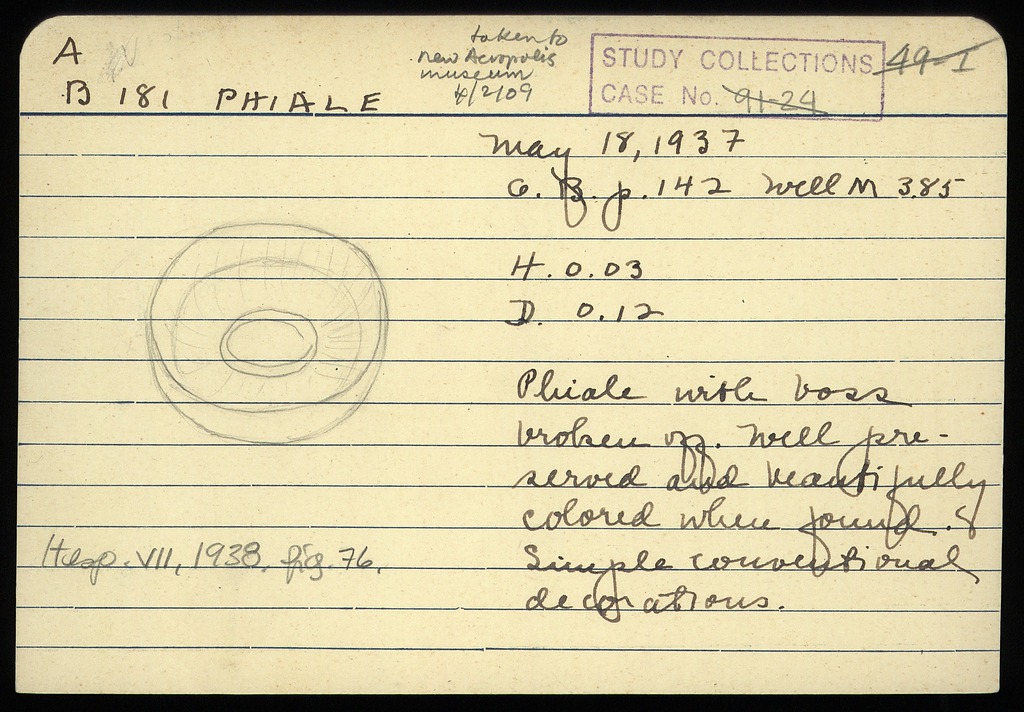 A
B 181 PHIALE
taken to
new Acropolis
museum
4/2/09
STUDY COLLECTIONS 49-I
CASE No. 91-24
May 18, 1937
G. B. p. 142 Well M 3.85
H. 0.03
D. 0.12
Phiale with boss
broken off. Well pre-
served and beautifully
colored when found.
Simple conventional
decorations.
Hesp. VII, 1938, fig. 76.